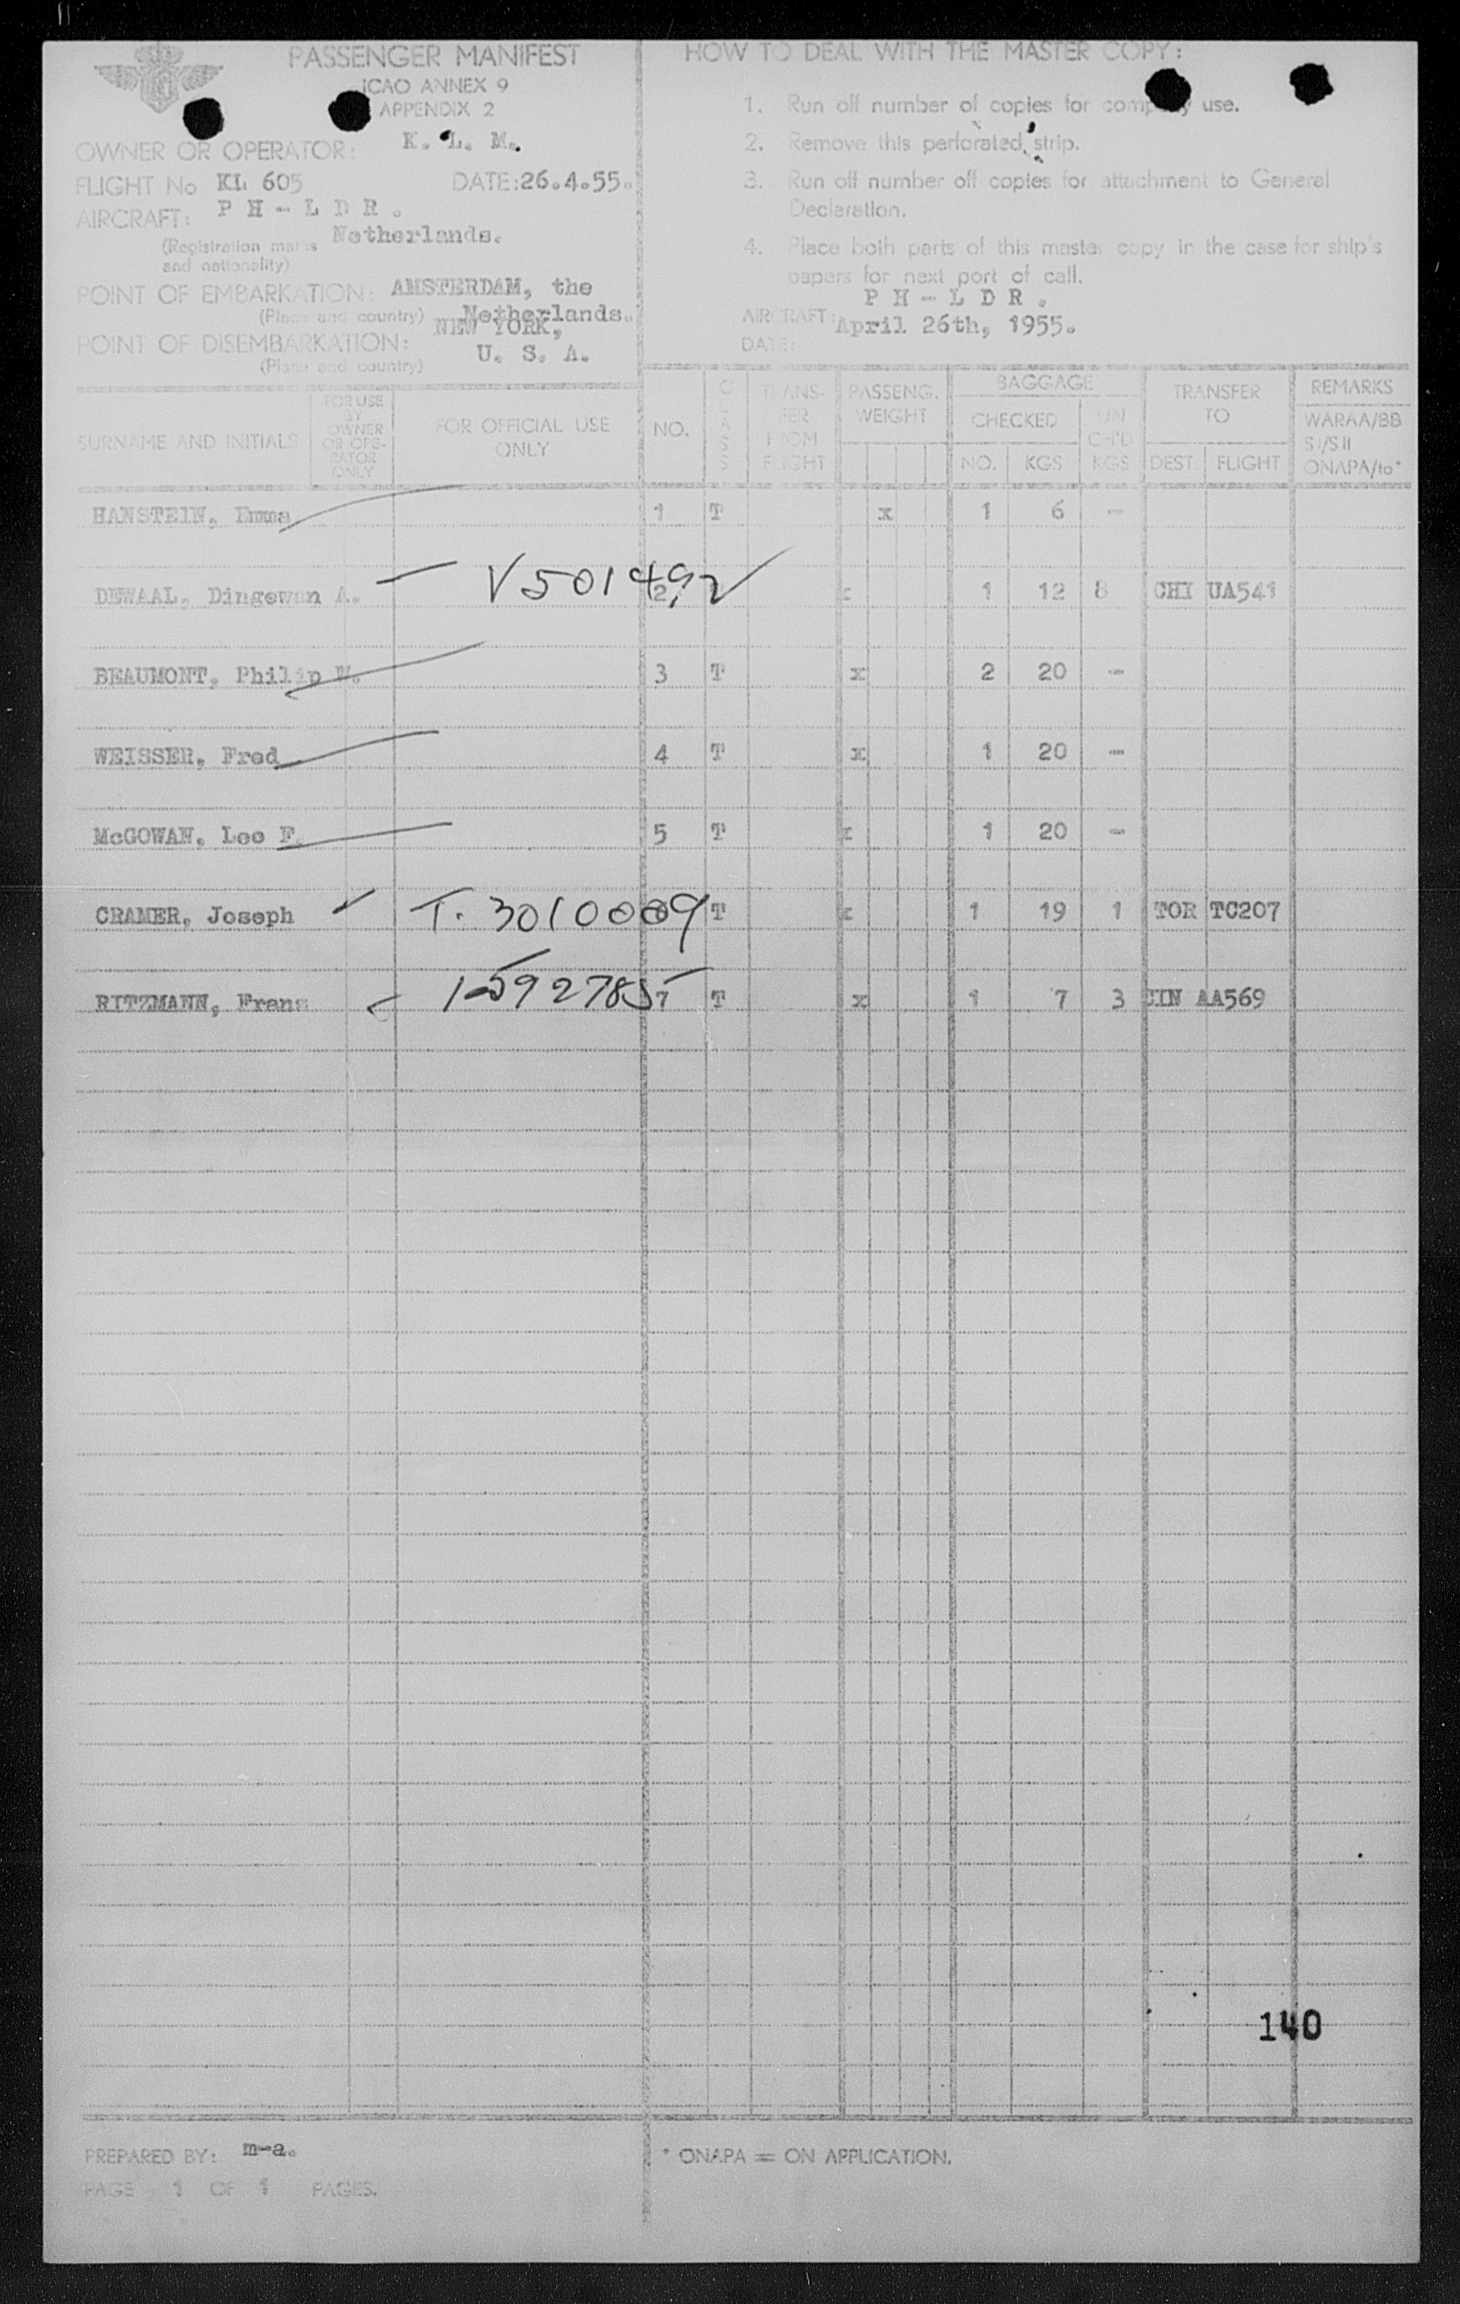 PASSENGER MANIFEST
ICAO ANNEX 9
APPENDIX 2
OWNER OR OPERATOR: K. L. M.
FLIGHT No KL 605 DATE: 26.4.55.
AIRCRAFT: P H - L D R .
(Registration marks Netherlands.
and nationality)
POINT OF EMBARKATION: AMSTERDAM, the
(Place and country) Netherlands.
NEW YORK,
POINT OF DISEMBARKATION: U. S. A.
(Place and country)
HOW TO DEAL WITH THE MASTER COPY:
1. Run off number of copies for company use.
2. Remove this perforated strip.
3. Run off number off copies for attachment to General
Declaration.
4. Place both parts of this master copy in the case for ship's
papers for next port of call.
AIRCRAFT: P H - L D R .
DATE: April 26th, 1955.
SURNAME AND INITIALS FOR USE BY OWNER OR OPE-RATOR ONLY FOR OFFICIAL USE ONLY NO. CLASS TRANS-FER FROM FLIGHT PASSENG. WEIGHT BAGGAGE CHECKED NO. KGS UN CH'D KGS TRANSFER TO DEST. FLIGHT REMARKS WARAA/BB SI/SII ONAPA/to*
HANSTEIN, Emma 1 T x 1 6 -
DEWAAL, Dingewan A. V501492 2 x 1 12 8 CHI UA541
BEAUMONT, Philip W. 3 T x 2 20 -
WEISSER, Fred 4 T x 1 20 -
McGOWAN, Leo F. 5 T x 1 20 -
CRAMER, Joseph T. 3010009 T x 1 19 1 TOR TC207
RITZMANN, Frans 1592785 7 T x 1 7 3 CIN AA569
140
PREPARED BY: m-a.
PAGE 1 OF 1 PAGES.
* ONAPA = ON APPLICATION.